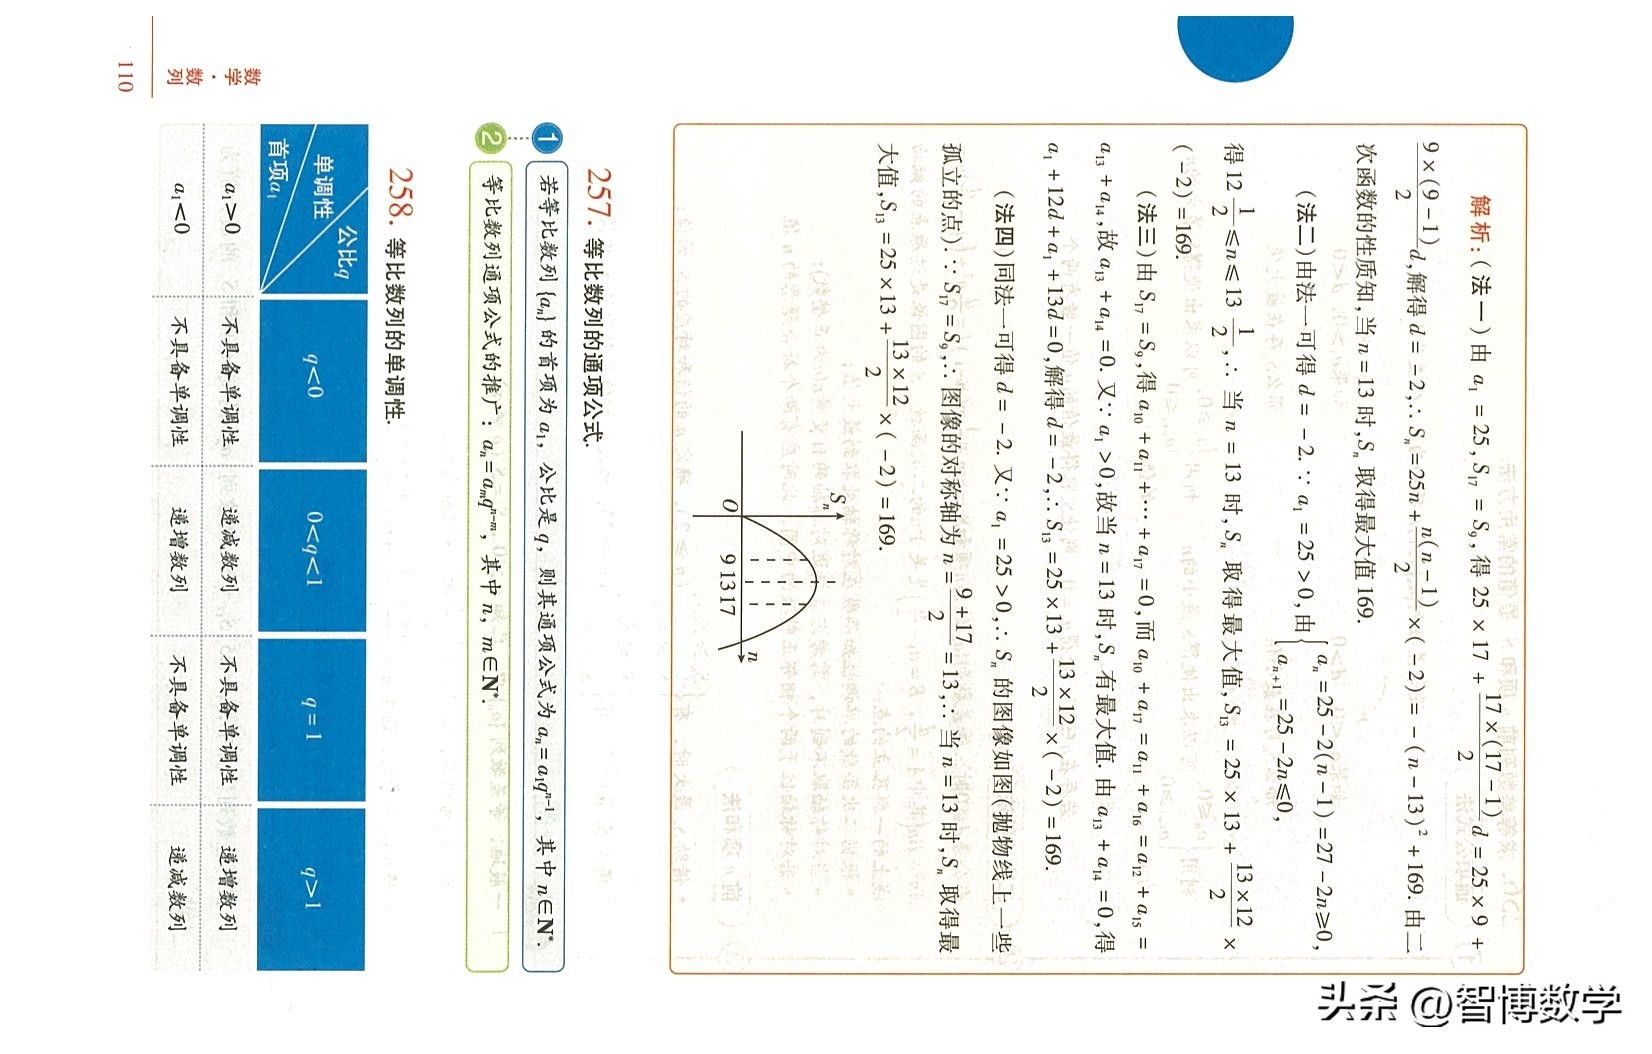 解析:(法一)由 a₁ = 25, S₁₇ = S₉, 得 25 × 17 + \frac{17×(17-1)}{2}d = 25 × 9 +
\frac{9×(9-1)}{2}d, 解得 d = -2, ∴ Sₙ = 25n + \frac{n(n-1)}{2} × (-2) = -(n-13)² + 169. 由二
次函数的性质知, 当 n = 13 时, Sₙ 取得最大值 169.
(法二)由法一可得 d = -2. ∵ a₁ = 25 > 0, 由 { aₙ = 25 - 2(n-1) = 27 - 2n ≥ 0,
aₙ₊₁ = 25 - 2n ≤ 0,
得 12\frac{1}{2} ≤ n ≤ 13\frac{1}{2}, ∴ 当 n = 13 时, Sₙ 取得最大值, S₁₃ = 25 × 13 + \frac{13×12}{2} ×
(-2) = 169.
(法三)由 S₁₇ = S₉, 得 a₁₀ + a₁₁ + … + a₁₇ = 0, 而 a₁₀ + a₁₇ = a₁₁ + a₁₆ = a₁₂ + a₁₅ =
a₁₃ + a₁₄, 故 a₁₃ + a₁₄ = 0. 又∵ a₁ > 0, 故当 n = 13 时, Sₙ 有最大值. 由 a₁₃ + a₁₄ = 0, 得
a₁ + 12d + a₁ + 13d = 0, 解得 d = -2, ∴ S₁₃ = 25 × 13 + \frac{13×12}{2} × (-2) = 169.
(法四)同法一可得 d = -2. 又∵ a₁ = 25 > 0, ∴ Sₙ 的图像如图(抛物线上一些
孤立的点). ∵ S₁₇ = S₉, ∴ 图像的对称轴为 n = \frac{9+17}{2} = 13, ∴ 当 n = 13 时, Sₙ 取得最
大值, S₁₃ = 25 × 13 + \frac{13×12}{2} × (-2) = 169.
Sₙ
O 9 13 17 n
257. 等比数列的通项公式.
1 若等比数列 {aₙ} 的首项为 a₁, 公比是 q, 则其通项公式为 aₙ = a₁qⁿ⁻¹, 其中 n∈N*.
2 等比数列通项公式的推广: aₙ = aₘqⁿ⁻ᵐ, 其中 n, m∈N*.
258. 等比数列的单调性.
公比q
单调性
首项a₁
q<0 0<q<1 q=1 q>1
a₁>0 不具备单调性 递减数列 不具备单调性 递增数列
a₁<0 不具备单调性 递增数列 不具备单调性 递减数列
数学·数列
110
头条 @智博数学